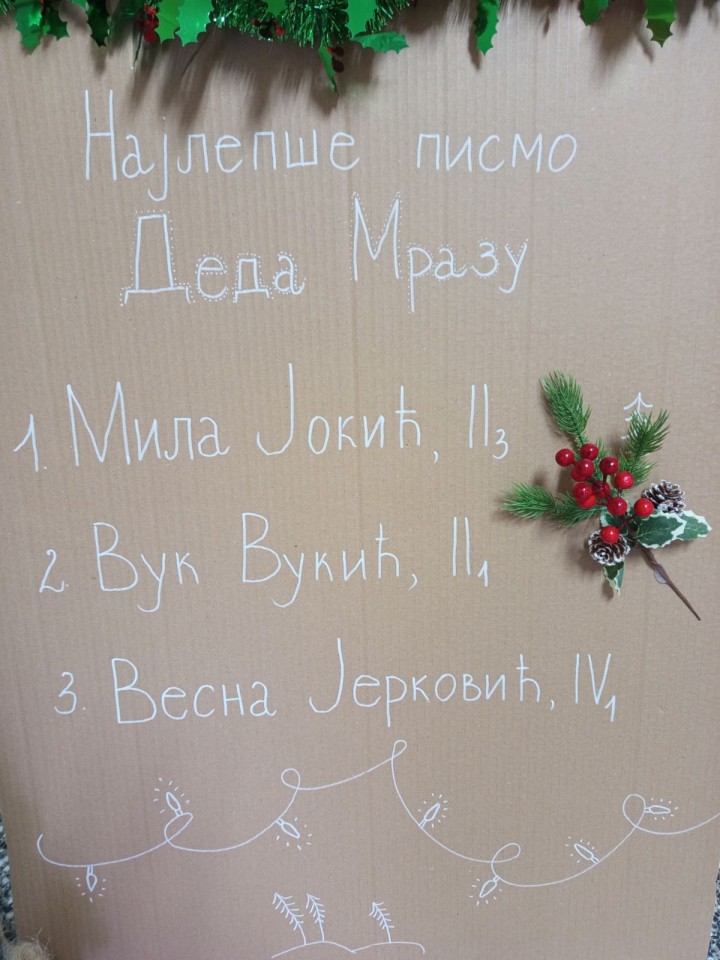 Најлепше писмо
Деда Мразу
1. Мила Јокић, II3
2. Вук Вукић, II1
3. Весна Јерковић, IV1